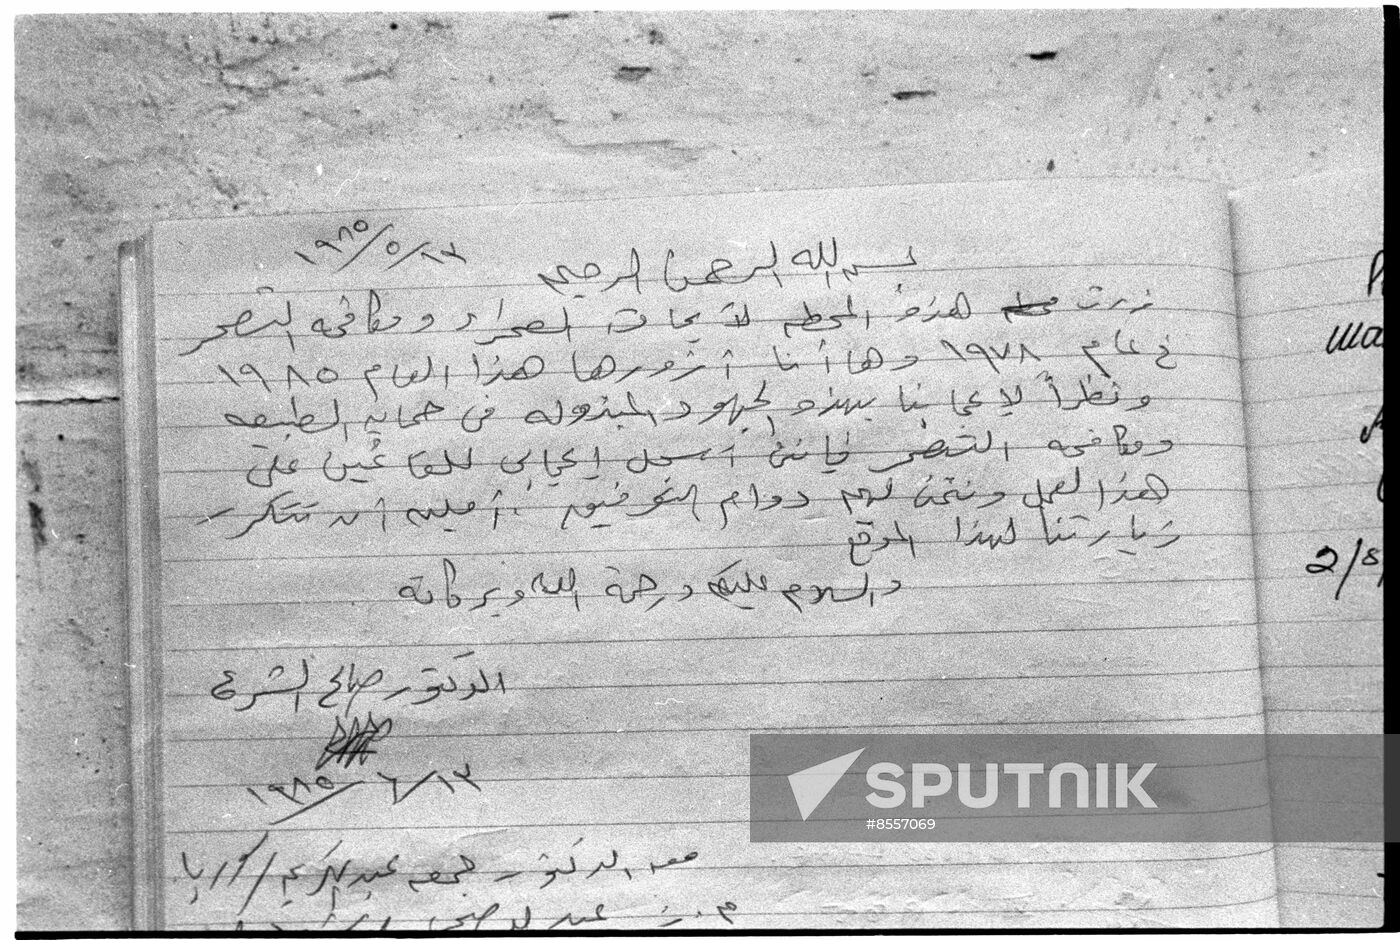 ١٩٨٥/٥/١٣
بسم الله الرحمن الرحيم
زرت هذه المحطه لأبحاث الصحراء ومكافحه التصحر
في عام ١٩٧٨ وها أنا أزورها هذا العام ١٩٨٥
ونظراً لإعجابنا بهذه الجهود المبذوله في حماية الطبيعه
ومكافحه التصحر فإنني أسجل إعجابي للقائمين على
هذا العمل ونتمنى لهم دوام التوفيق، آملين أن تتكرر
زيارتنا لهذا الموقع
والسلام عليكم ورحمة الله وبركاته
الدكتور صالح الشرع
١٩٨٥/٦/١٣
الدكتور جمعه عبد الكريم
م. عبد
2/8
SPUTNIK
#8557069